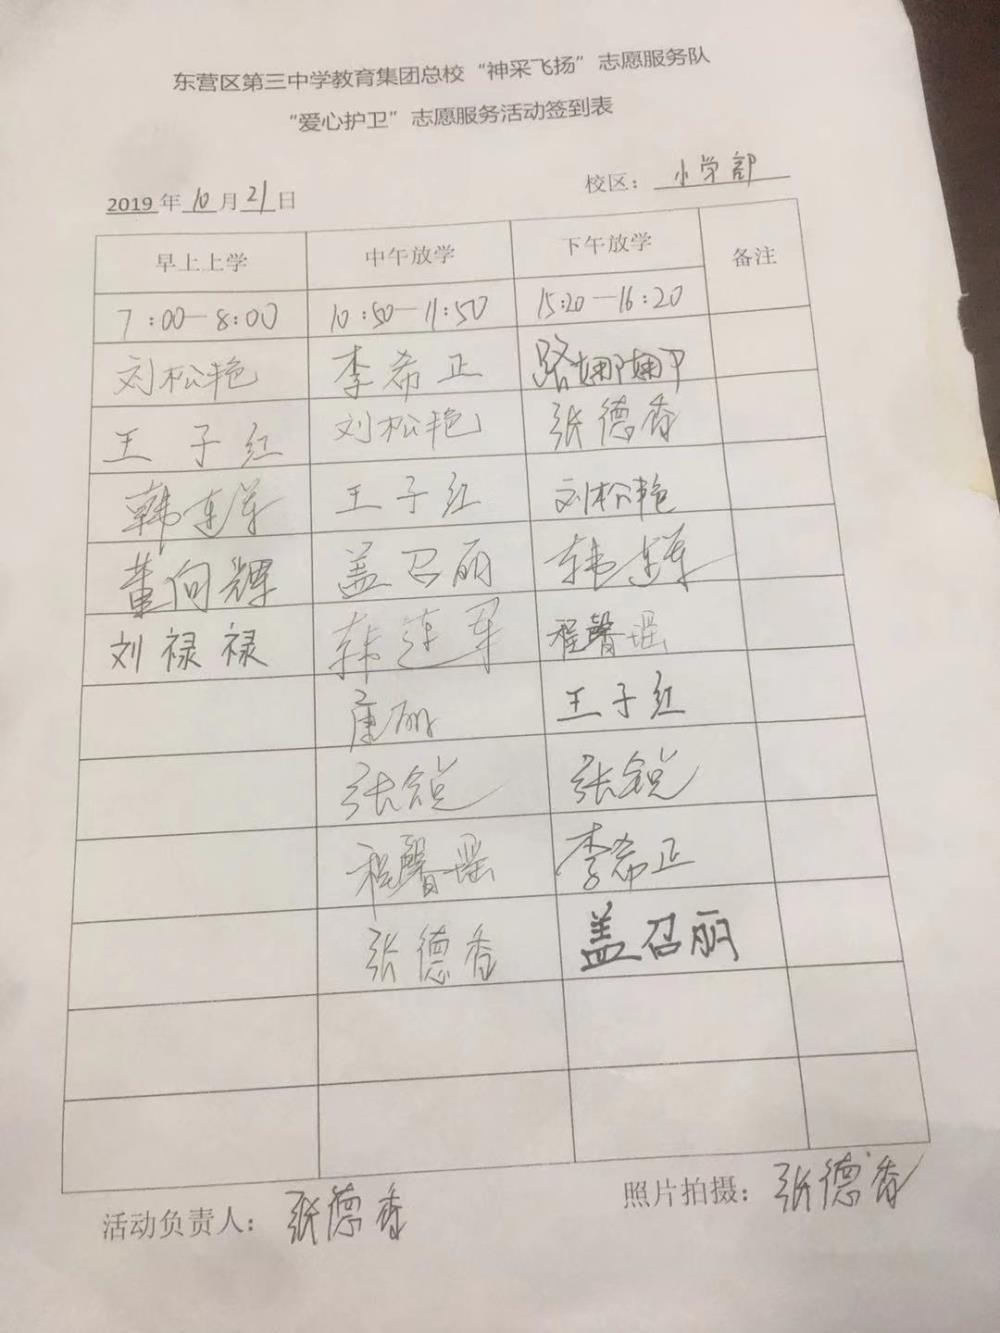 东营区第三中学教育集团总校“神采飞扬”志愿服务队
“爱心护卫”志愿服务活动签到表
2019年10月21日 校区：小学部
早上上学 中午放学 下午放学 备注
7:00—8:00 10:50—11:50 15:20—16:20
刘松艳 李希正 路娜娜
王子红 刘松艳 张德香
韩连军 王子红 刘松艳
董向辉 盖召丽 韩连军
刘禄禄 韩连军 程馨瑶
唐丽 王子红
张锐 张锐
程馨瑶 李希正
张德香 盖召丽
活动负责人：张德香 照片拍摄：张德香